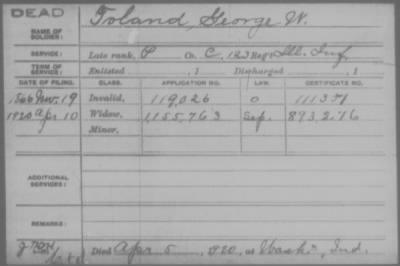 DEAD
NAME OF SOLDIER: Toland, George W.
SERVICE: Late rank, P Co. C, 123 Reg't Ill. Inf.
TERM OF SERVICE: Enlisted , 1 Discharged , 1
DATE OF FILING. CLASS. APPLICATION NO. LAW. CERTIFICATE NO.
1866 Nov. 19 Invalid, 119,026 0 111351
1920 Apr 10 Widow, 1155,763 Sep. 893,276
Minor,
ADDITIONAL SERVICES:
REMARKS:
Died Apr 5, 1920, at Wash'n, Ind.